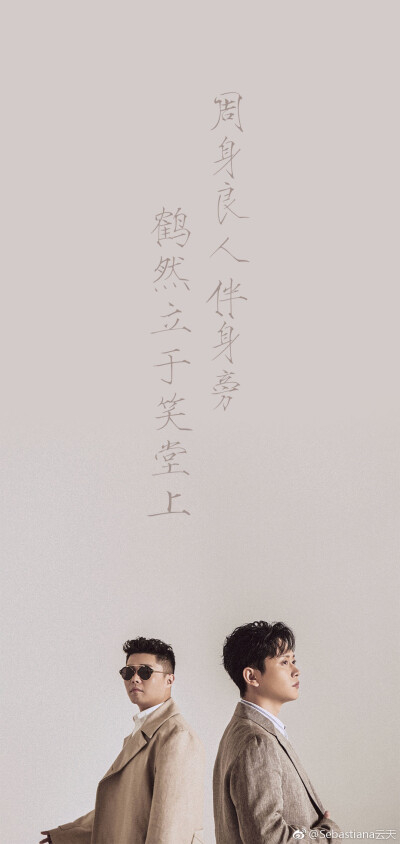 周身良人伴身旁
鹤然立于笑堂上
@Sebastiana云天